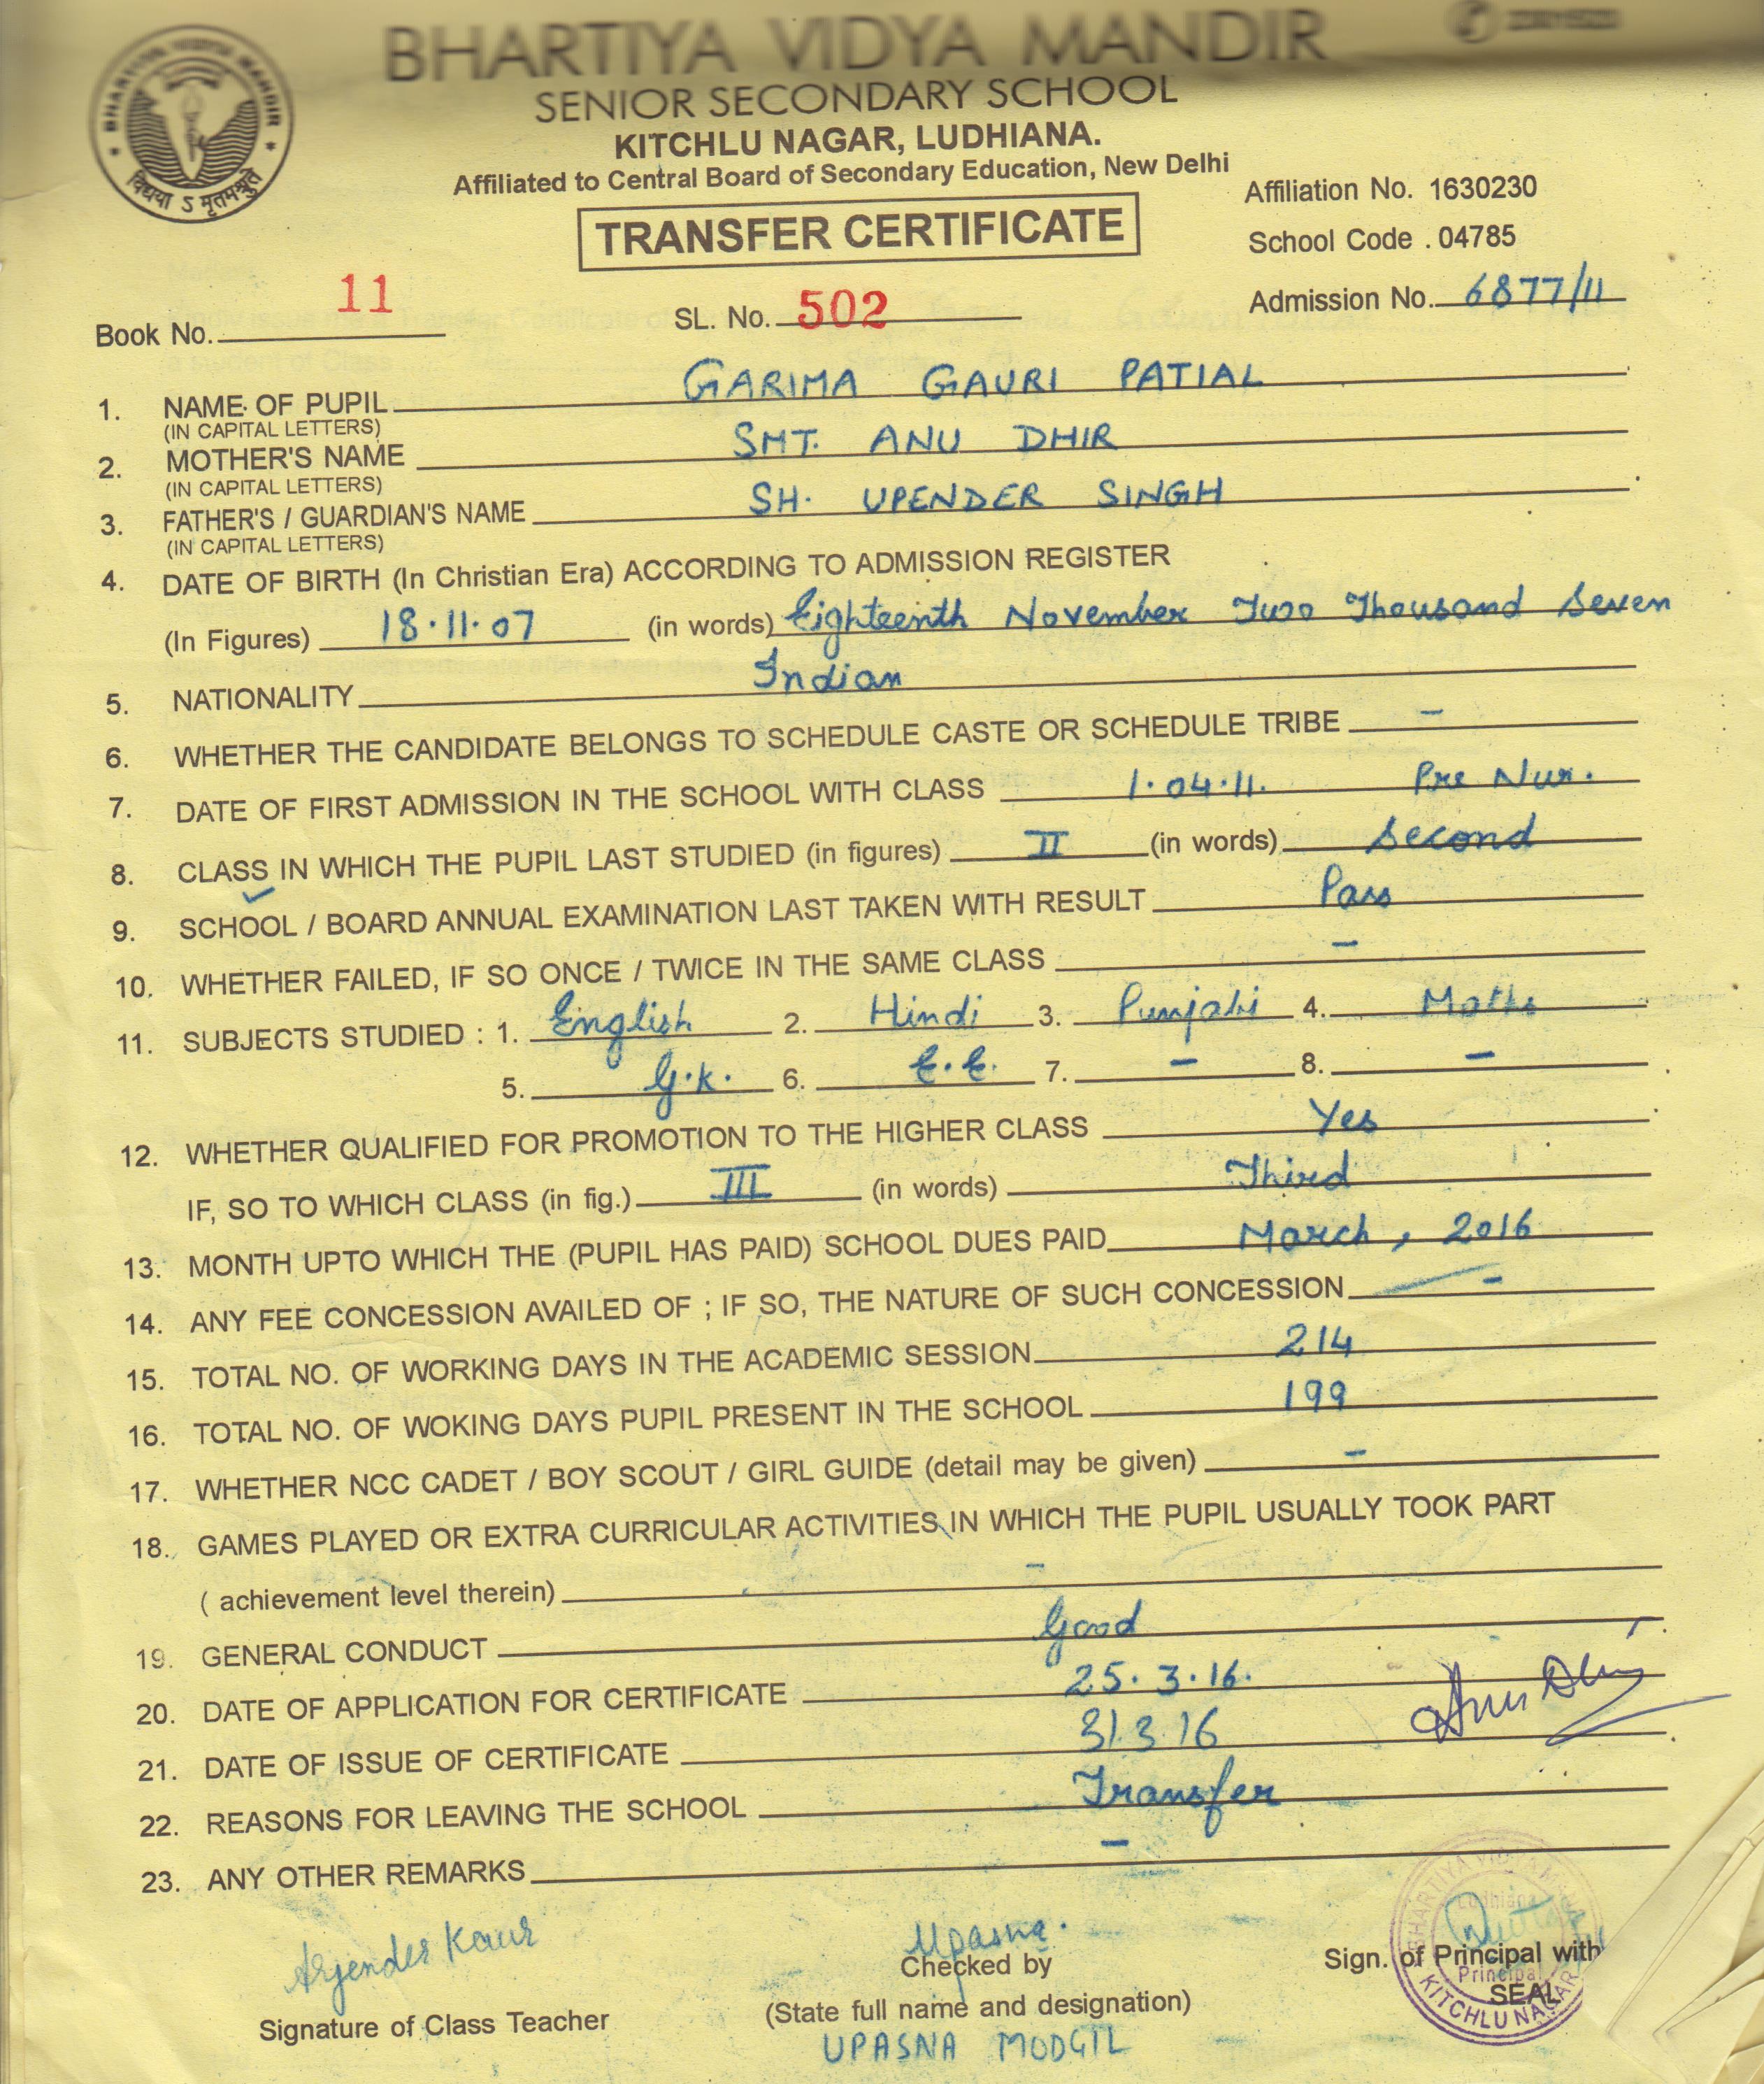 BHARTIYA VIDYA MANDIR
SENIOR SECONDARY SCHOOL
KITCHLU NAGAR, LUDHIANA.
Affiliated to Central Board of Secondary Education, New Delhi
BHARTIYA VIDYA MANDIR
विद्यया ऽ मृतमश्नुते
Affiliation No. 1630230
TRANSFER CERTIFICATE
School Code . 04785
Admission No. 6877/11
Book No. 11 SL. No. 502
1. NAME OF PUPIL GARIMA GAURI PATIAL
(IN CAPITAL LETTERS)
2. MOTHER'S NAME SMT. ANU DHIR
(IN CAPITAL LETTERS)
3. FATHER'S / GUARDIAN'S NAME SH. UPENDER SINGH
(IN CAPITAL LETTERS)
4. DATE OF BIRTH (In Christian Era) ACCORDING TO ADMISSION REGISTER
(In Figures) 18.11.07 (in words) Eighteenth November Two Thousand Seven
5. NATIONALITY Indian
6. WHETHER THE CANDIDATE BELONGS TO SCHEDULE CASTE OR SCHEDULE TRIBE -
7. DATE OF FIRST ADMISSION IN THE SCHOOL WITH CLASS 1.04.11. Pre Nur.
8. CLASS IN WHICH THE PUPIL LAST STUDIED (in figures) II (in words) Second
9. SCHOOL / BOARD ANNUAL EXAMINATION LAST TAKEN WITH RESULT Pass
10. WHETHER FAILED, IF SO ONCE / TWICE IN THE SAME CLASS -
11. SUBJECTS STUDIED : 1. English 2. Hindi 3. Punjabi 4. Maths
5. G.K. 6. E.E. 7. - 8. -
12. WHETHER QUALIFIED FOR PROMOTION TO THE HIGHER CLASS Yes
IF, SO TO WHICH CLASS (in fig.) III (in words) Third
13. MONTH UPTO WHICH THE (PUPIL HAS PAID) SCHOOL DUES PAID March, 2016
14. ANY FEE CONCESSION AVAILED OF ; IF SO, THE NATURE OF SUCH CONCESSION -
15. TOTAL NO. OF WORKING DAYS IN THE ACADEMIC SESSION 214
16. TOTAL NO. OF WOKING DAYS PUPIL PRESENT IN THE SCHOOL 199
17. WHETHER NCC CADET / BOY SCOUT / GIRL GUIDE (detail may be given) -
18. GAMES PLAYED OR EXTRA CURRICULAR ACTIVITIES IN WHICH THE PUPIL USUALLY TOOK PART
( achievement level therein) -
19. GENERAL CONDUCT Good
20. DATE OF APPLICATION FOR CERTIFICATE 25.3.16.
Anu Dhir
21. DATE OF ISSUE OF CERTIFICATE 31.3.16
22. REASONS FOR LEAVING THE SCHOOL Transfer
23. ANY OTHER REMARKS -
Kaur
Upasna.
Checked by
Sign. of Principal with
SEAL
Ludhiana
Principal
KITCHLU NAGAR
Signature of Class Teacher
(State full name and designation)
UPASNA MODGIL